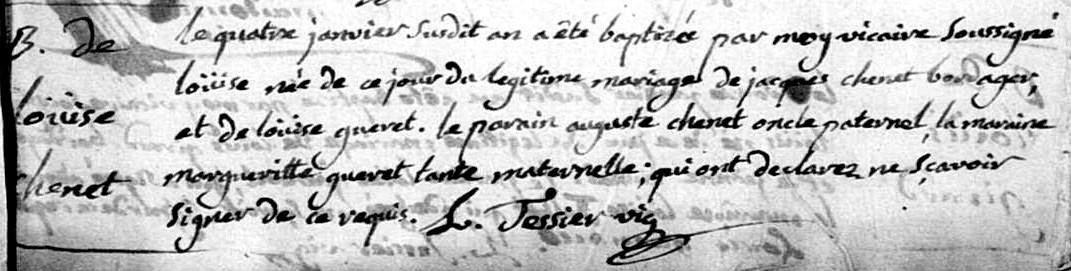 B. de
loüise
chenet
le quatre janvier susdit an a êté baptizéé par moy vicaire soussigné
loüise néé de ce jour du legitime mariage de jacques chenet bordager,
et de loüise gueret. le parain auguste chenet oncle paternel, la maraine
margueritte gueret tante maternelle; qui ont declarez ne sçavoir
signer de ce requis. L. Tessier vic